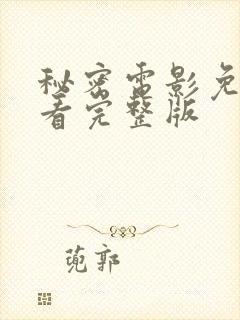 秘密电影免
看完整版
蔸郭